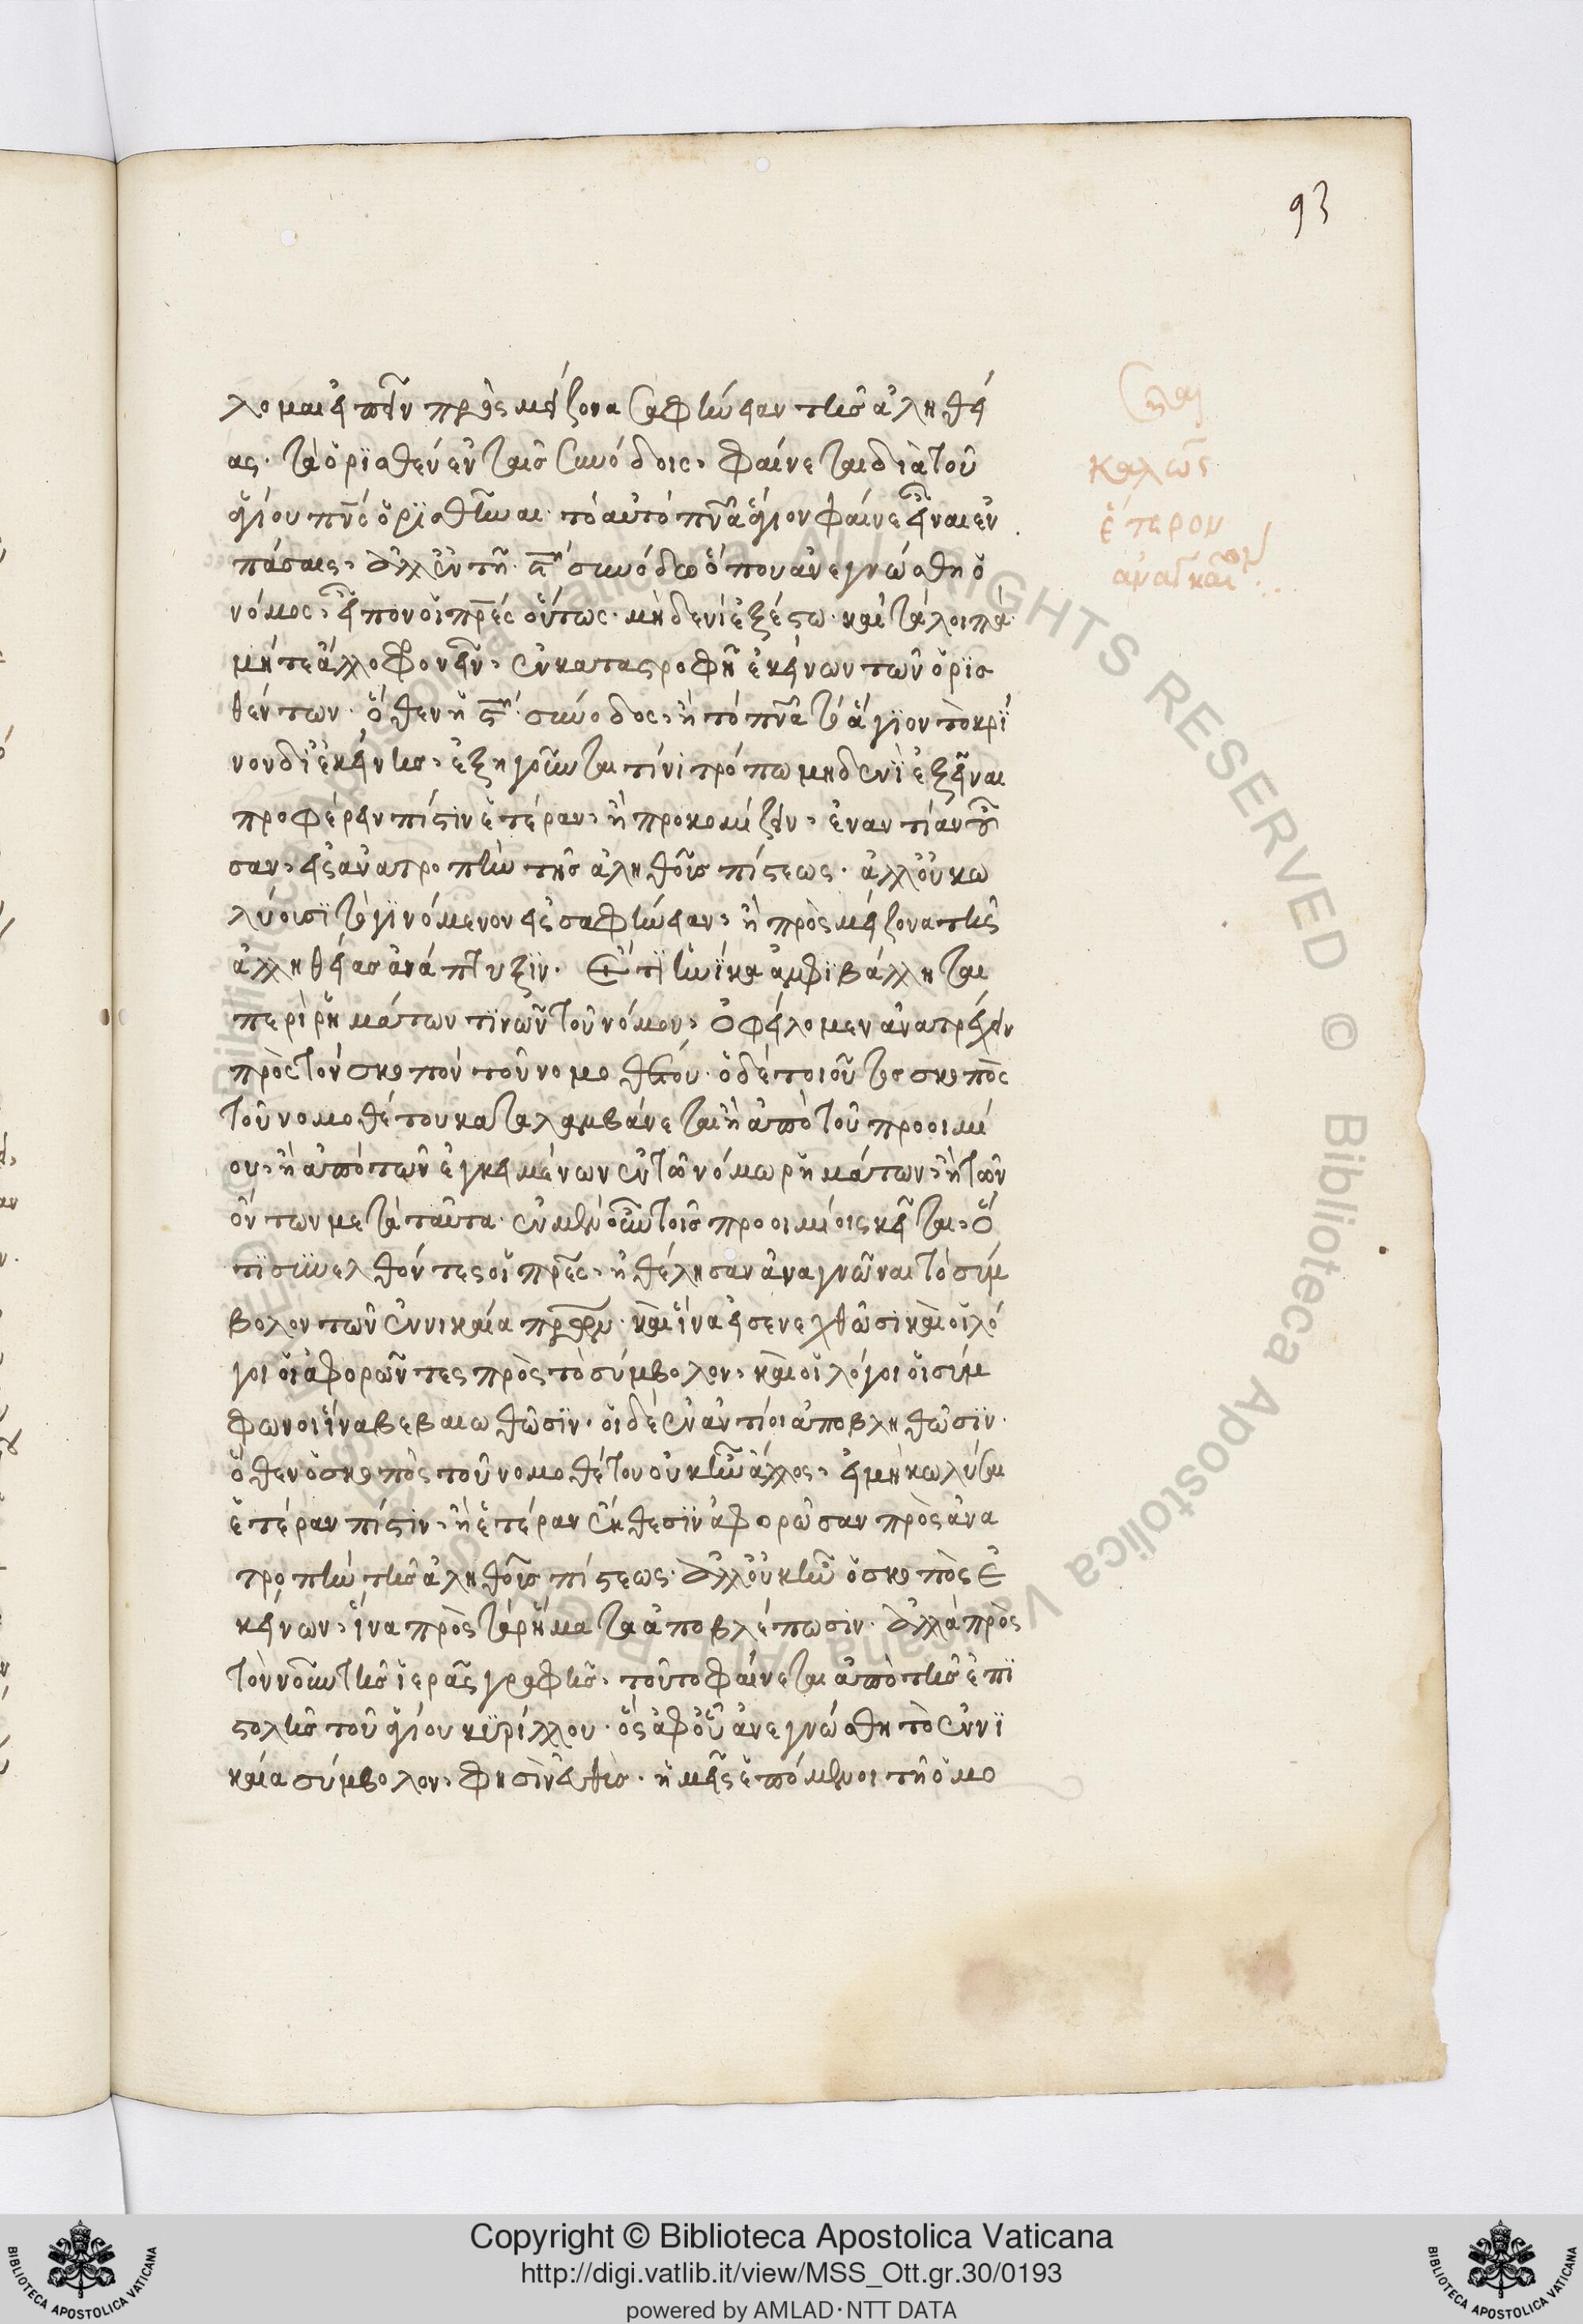 93
λομαι εἰπεῖν πρὸς μείζονα σαφήνειαν τῆς ἀληθεί
ας· τὰ ὁρισθέν ἐν ταῖς συνόδοις, φαίνεται διὰ τοῦ
ἁγίου πνς ὁρισθῆναι· τὸ αὐτὸ πνα ἅγιον φαίνεται εἶναι ἐν
πάσαις, ἀλλ' ἐν τῇ συνόδω ὅπου ἀνεγνώσθη ὁ
νόμος, εἶπον οἱ πρες οὕτως· μηδενὶ ἐξέστω· καὶ τὰ λοιπά
μήτε ἄλλο φρονεῖν, ἐν καταστροφῆ ἐκείνων τῶν ὁρϊσ
θέντων· ὅθεν ἡ σύνοδος, ἢ τὸ πνα τὸ ἅγϊον τὸ κρί
νον δι' ἐκείνης, ἐξηγεῖται τίνι τρόπω μηδενὶ ἐξεῖναι
προφέρειν πίστιν ἑτέραν, ἢ προκομίζειν, ἐναντίαν οὖ
σαν, εἰς ἀνατροπὴν τῆς ἀληθοῦς πίστεως· ἀλλ' οὐ κω
λύουσι τὸ γϊνόμενον εἰς σαφήνειαν, ἢ πρὸς μείζονα τῆς
ἀλληθείας ἀνάπτυξϊν. Ἔτϊ ἡνίκα ἀμφιβάλληται
περὶ ῥημάτων τινῶν τοῦ νόμου, ὀφείλομεν ἀνατρέχειν
πρὸς τὸν σκοπὸν τοῦ νομοθέτου· ὁ δὲ τοιοῦτος σκοπὸς
τοῦ νομοθέτου καταλαμβάνεται ἢ ἀπὸ τοῦ προοιμί
ου, ἢ ἀπὸ τῶν ἐγκειμένων ἐν τῶ νόμω ῥημάτων, ἢ τῶν
ὄντων μετὰ ταῦτα· ἐν μὲν οὖν τοῖς προοιμίοις κεῖται, ὅ
τϊ συνελθόντες οἱ πρες, ἠθέλησαν ἀναγνῶναι τὸ σύμ
βολον τῶν ἐν νικαία πρων· καὶ ἵνα εἰσενεχθῶσι καὶ οἱ λό
γοι οἱ ἀφορῶντες πρὸς τὸ σύμβολον, καὶ οἱ λόγοι οἱ σύμ
φωνοι ἵνα βεβαιωθῶσϊν· οἱ δὲ ἐναντίοι ἀποβληθῶσϊν·
ὅθεν ὁ σκοπὸς τοῦ νομοθέτου οὐκ ἦν ἄλλος, εἰ μὴ κωλύσαι
ἑτέραν πίστιν, ἢ ἑτέραν ἔκθεσϊν ἀφορῶσαν πρὸς ἀνα
τροπὴν τῆς ἀληθοῦς πίστεως· ἀλλ' οὐκ ἦν ὁ σκοπὸς ἐ
κείνων, ἵνα πρὸς τὰ ῥήματα ἀποβλέπωσιν· ἀλλὰ πρὸς
τὸν νοῦν τῆς ἱερᾶς γραφῆς, τοῦτο φαίνεται ἀπὸ τῆς ἐπϊ
στολῆς τοῦ ἁγίου κϋρίλλου· ὃς ἀφ' οὗ ἀνεγνώσθη τὸ ἐν νϊ
καία σύμβολον, φησὶν εὐθὺς· ἡμεῖς ἑπόμενοι τῆ ὁμο
καλῶς
ἕτερον
ἀναγκαῖον
Copyright © Biblioteca Apostolica Vaticana
http://digi.vatlib.it/view/MSS_Ott.gr.30/0193
powered by AMLAD·NTT DATA